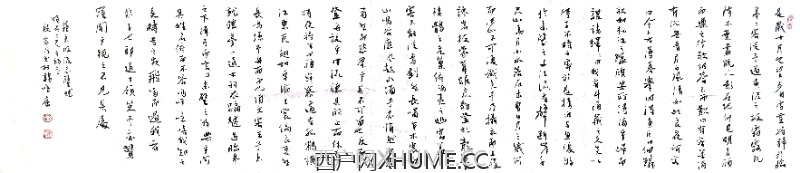 是歲十月之望步自雪堂將歸於臨
皋二客從予過黃泥之坂霜露既
降木葉盡脫人影在地仰見明月顧
而樂之行歌相答已而歎曰有客無酒
有酒無肴月白風清如此良夜何客
曰今者薄暮舉網得魚巨口細鱗
狀似松江之鱸顧安所得酒乎歸而
謀諸婦婦曰我有斗酒藏之久矣以
待子不時之需於是攜酒與魚復遊
於赤壁之下江流有聲斷岸千
尺山高月小水落石出曾日月之幾何
而江山不可復識矣予乃攝衣而上履
巉岩披蒙茸踞虎豹登虯龍攀
棲鶻之危巢俯馮夷之幽宮蓋二
客不能從焉劃然長嘯草木震動
山鳴谷應風起水涌予亦悄然而悲
肅然而恐凜乎其不可留也反而
登舟放乎中流聽其所止而休焉
時夜將半四顧寂寥適有孤鶴橫
江東來翅如車輪玄裳縞衣戛然
長鳴掠予舟而西也須臾客去予亦
就睡夢一道士羽衣蹁躚過臨皋
之下揖予而言曰赤壁之遊樂乎問
其姓名俯而不答嗚呼噫嘻我知之矣
疇昔之夜飛鳴而過我者
非子也耶道士顧笑予亦驚
寤開戶視之不見其處
西户网XHUME.CC